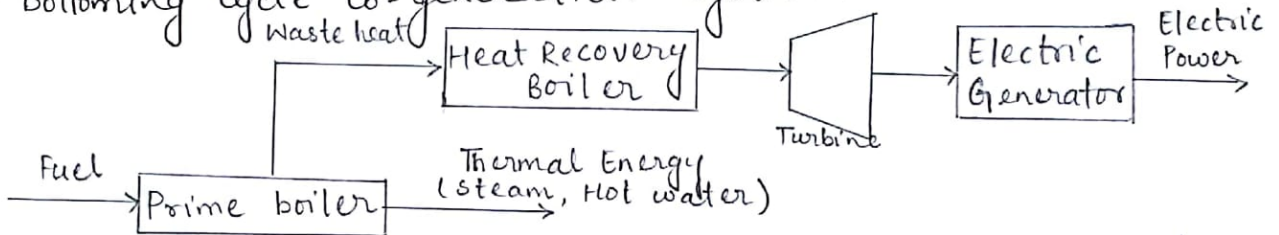 Bottoming cycle co-generation
Waste heat
Heat Recovery
Boiler
Turbine
Electric
Generator
Electric
Power
Fuel
Prime boiler
Thermal Energy
(steam, Hot water)